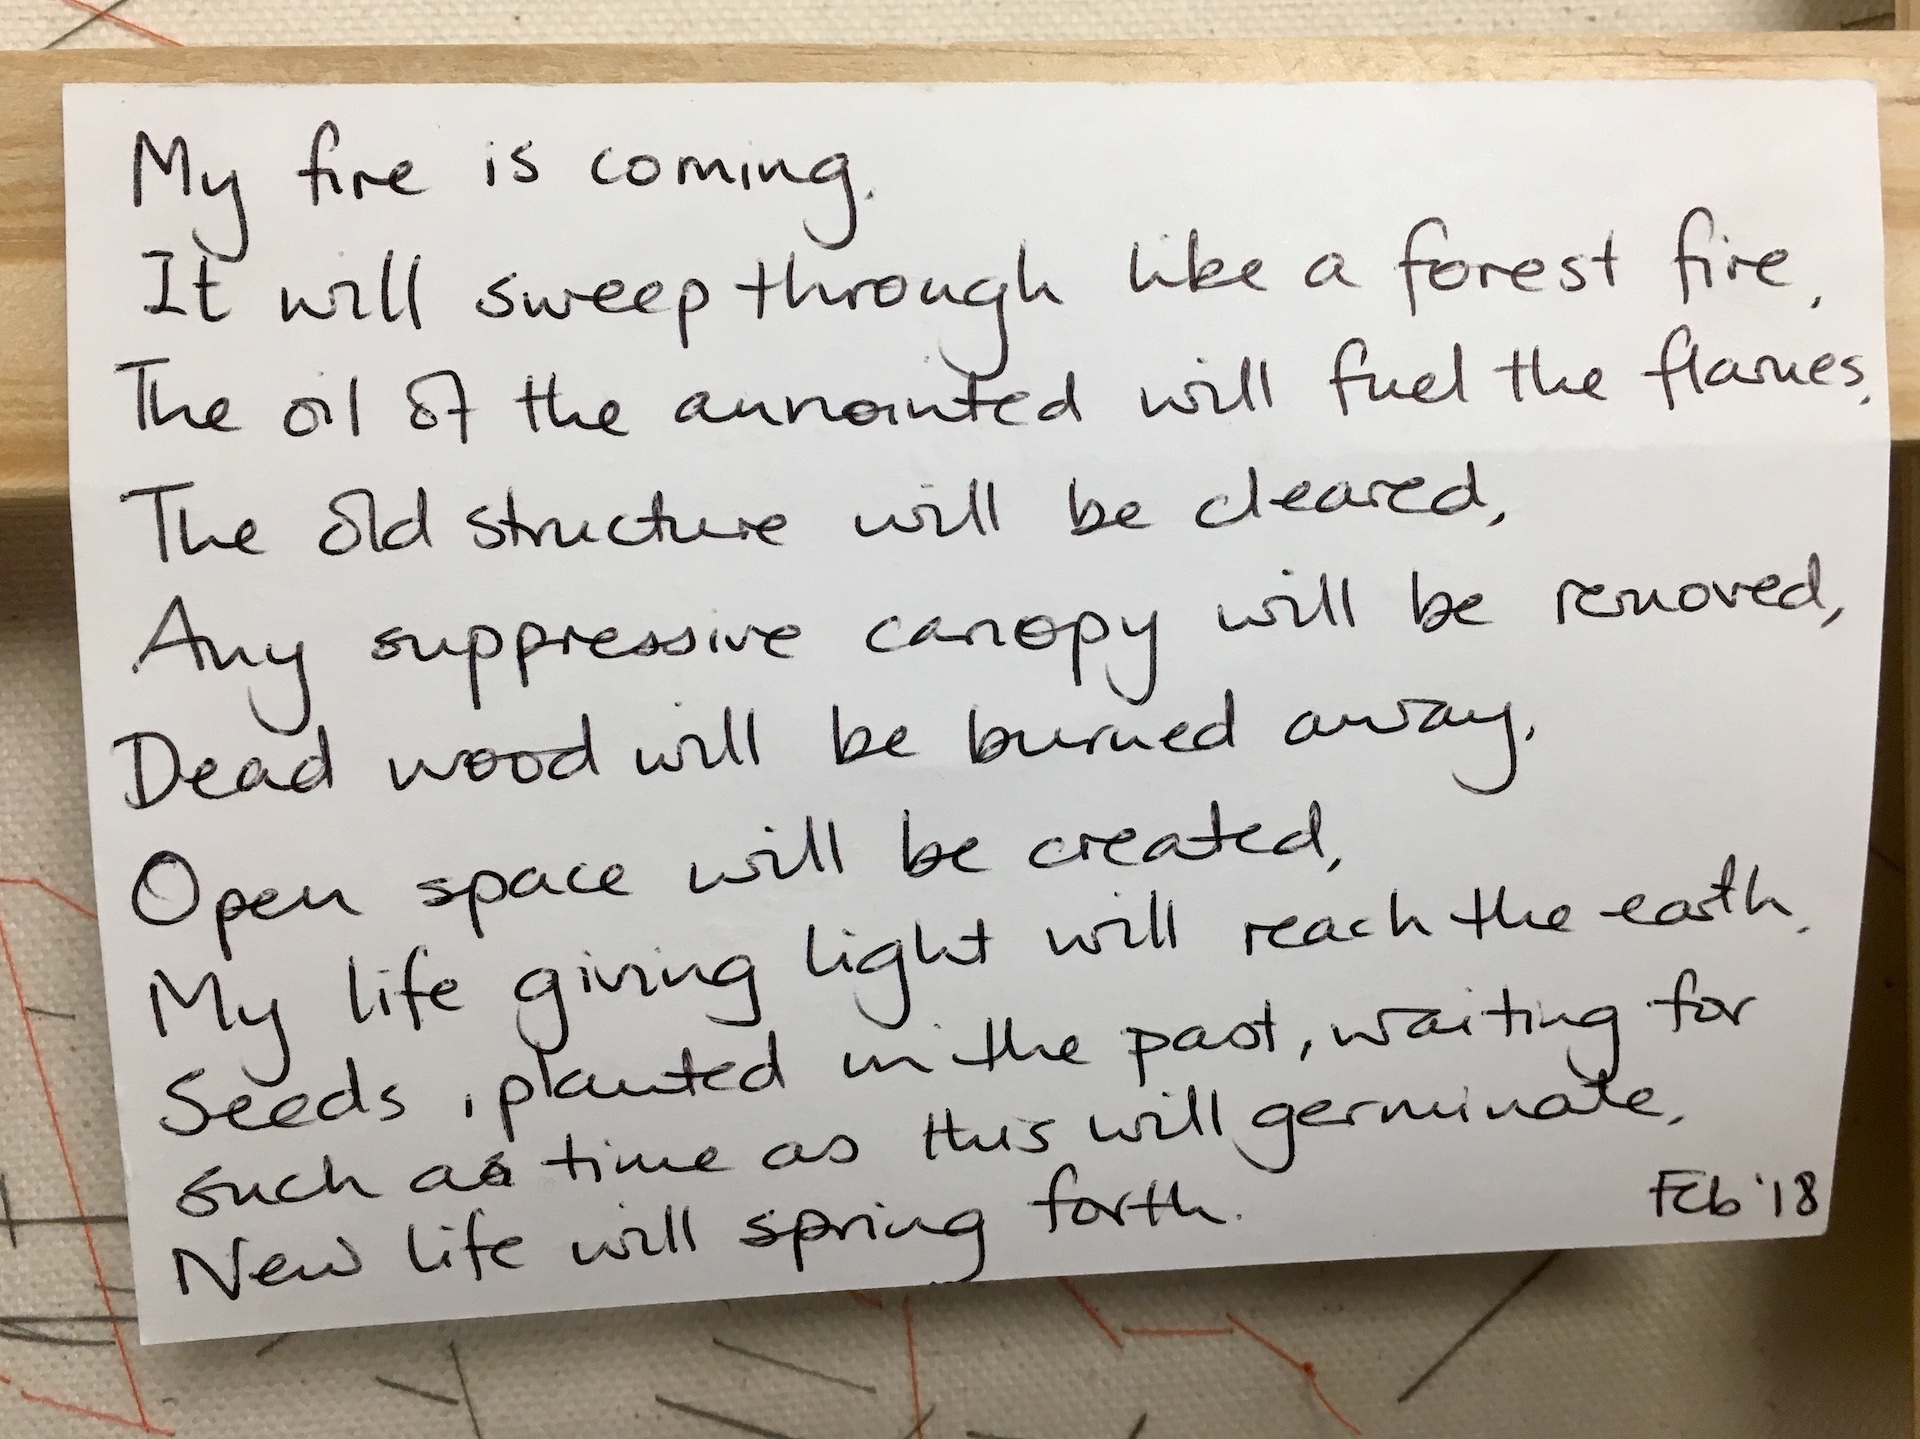 My fire is coming.
It will sweep through like a forest fire,
The oil of the annointed will fuel the flames.
The old structure will be cleared,
Any suppressive canopy will be removed,
Dead wood will be burned away.
Open space will be created,
My life giving light will reach the earth.
Seeds, planted in the past, waiting for
such as time as this will germinate,
New life will spring forth.
Feb '18